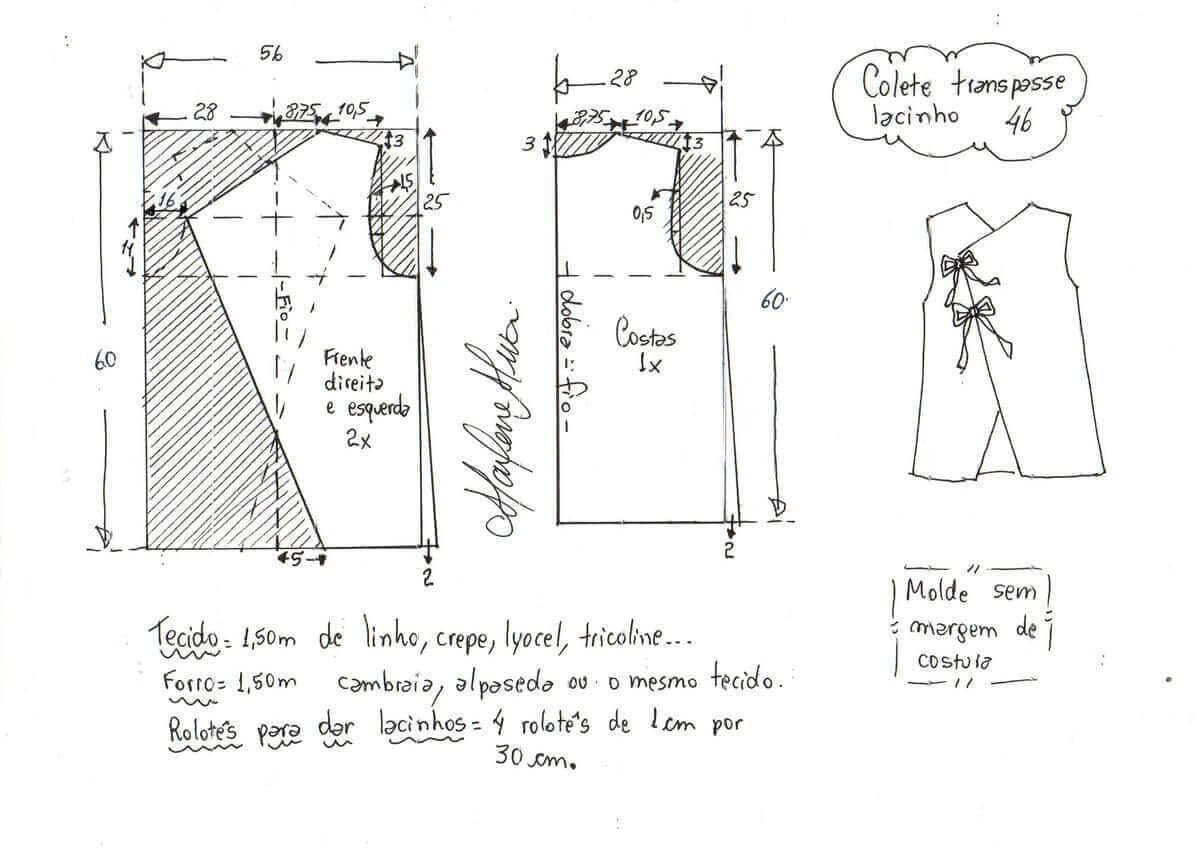 56
28
8,75
10,5
3
15
25
16
11
60
-Fio-
Frente
direita
e esquerda
2x
5
2
28
8,75
10,5
3
3
0,5
25
60
- dobra = fio -
Costas
1x
2
Colete transpasse
lacinho 46
Molde sem
margem de
costula
Tecido = 1,50m de linho, crepe, lyocel, tricoline...
Forro = 1,50m cambraia, alpaseda ou o mesmo tecido.
Rolotê's para dar lacinhos = 4 rolotê's de 1cm por
30 cm.